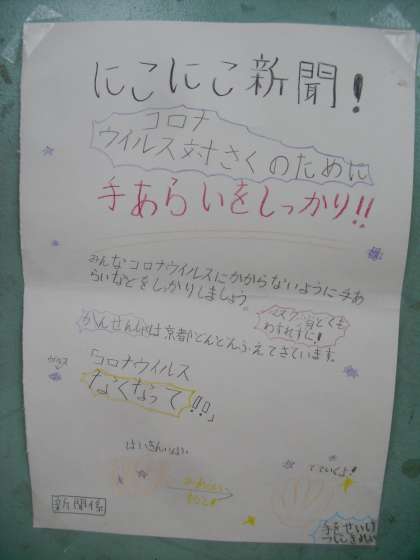 にこにこ新聞!
コロナ
ウイルス対さくのために
手あらいをしっかり!!
みんなコロナウイルスにかからないように手あ
らいなどをしっかりしましょう。
マスク、消どくも
わすれずに!
かんせんしゃは京都どんどんふえてきています。
ウイルス
「コロナウイルス
なくなって!!」
ばいきんいっぱい
でていくよ!
新聞係
手をせいけ